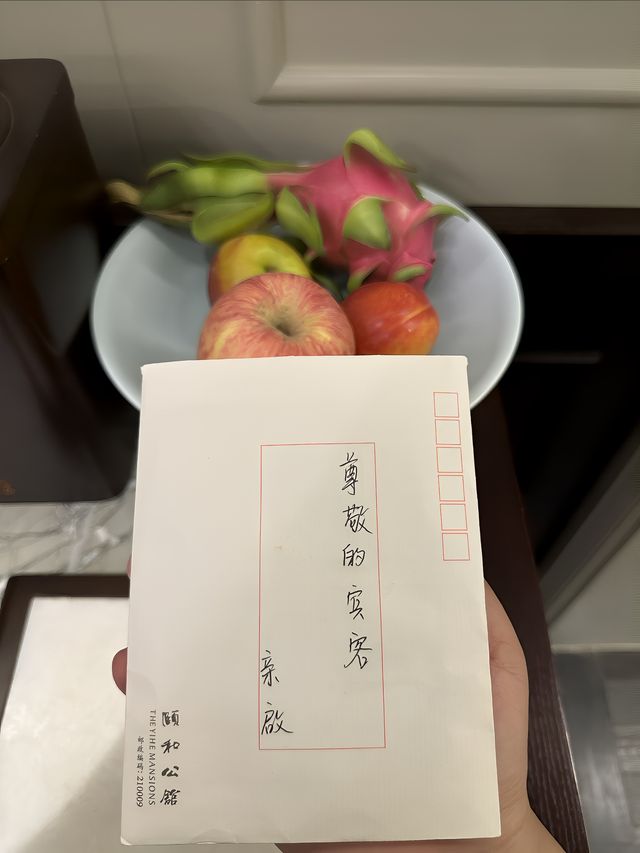 尊敬的宾客
亲啟
頤和公館
THE YIHE MANSIONS
邮政编码:210009